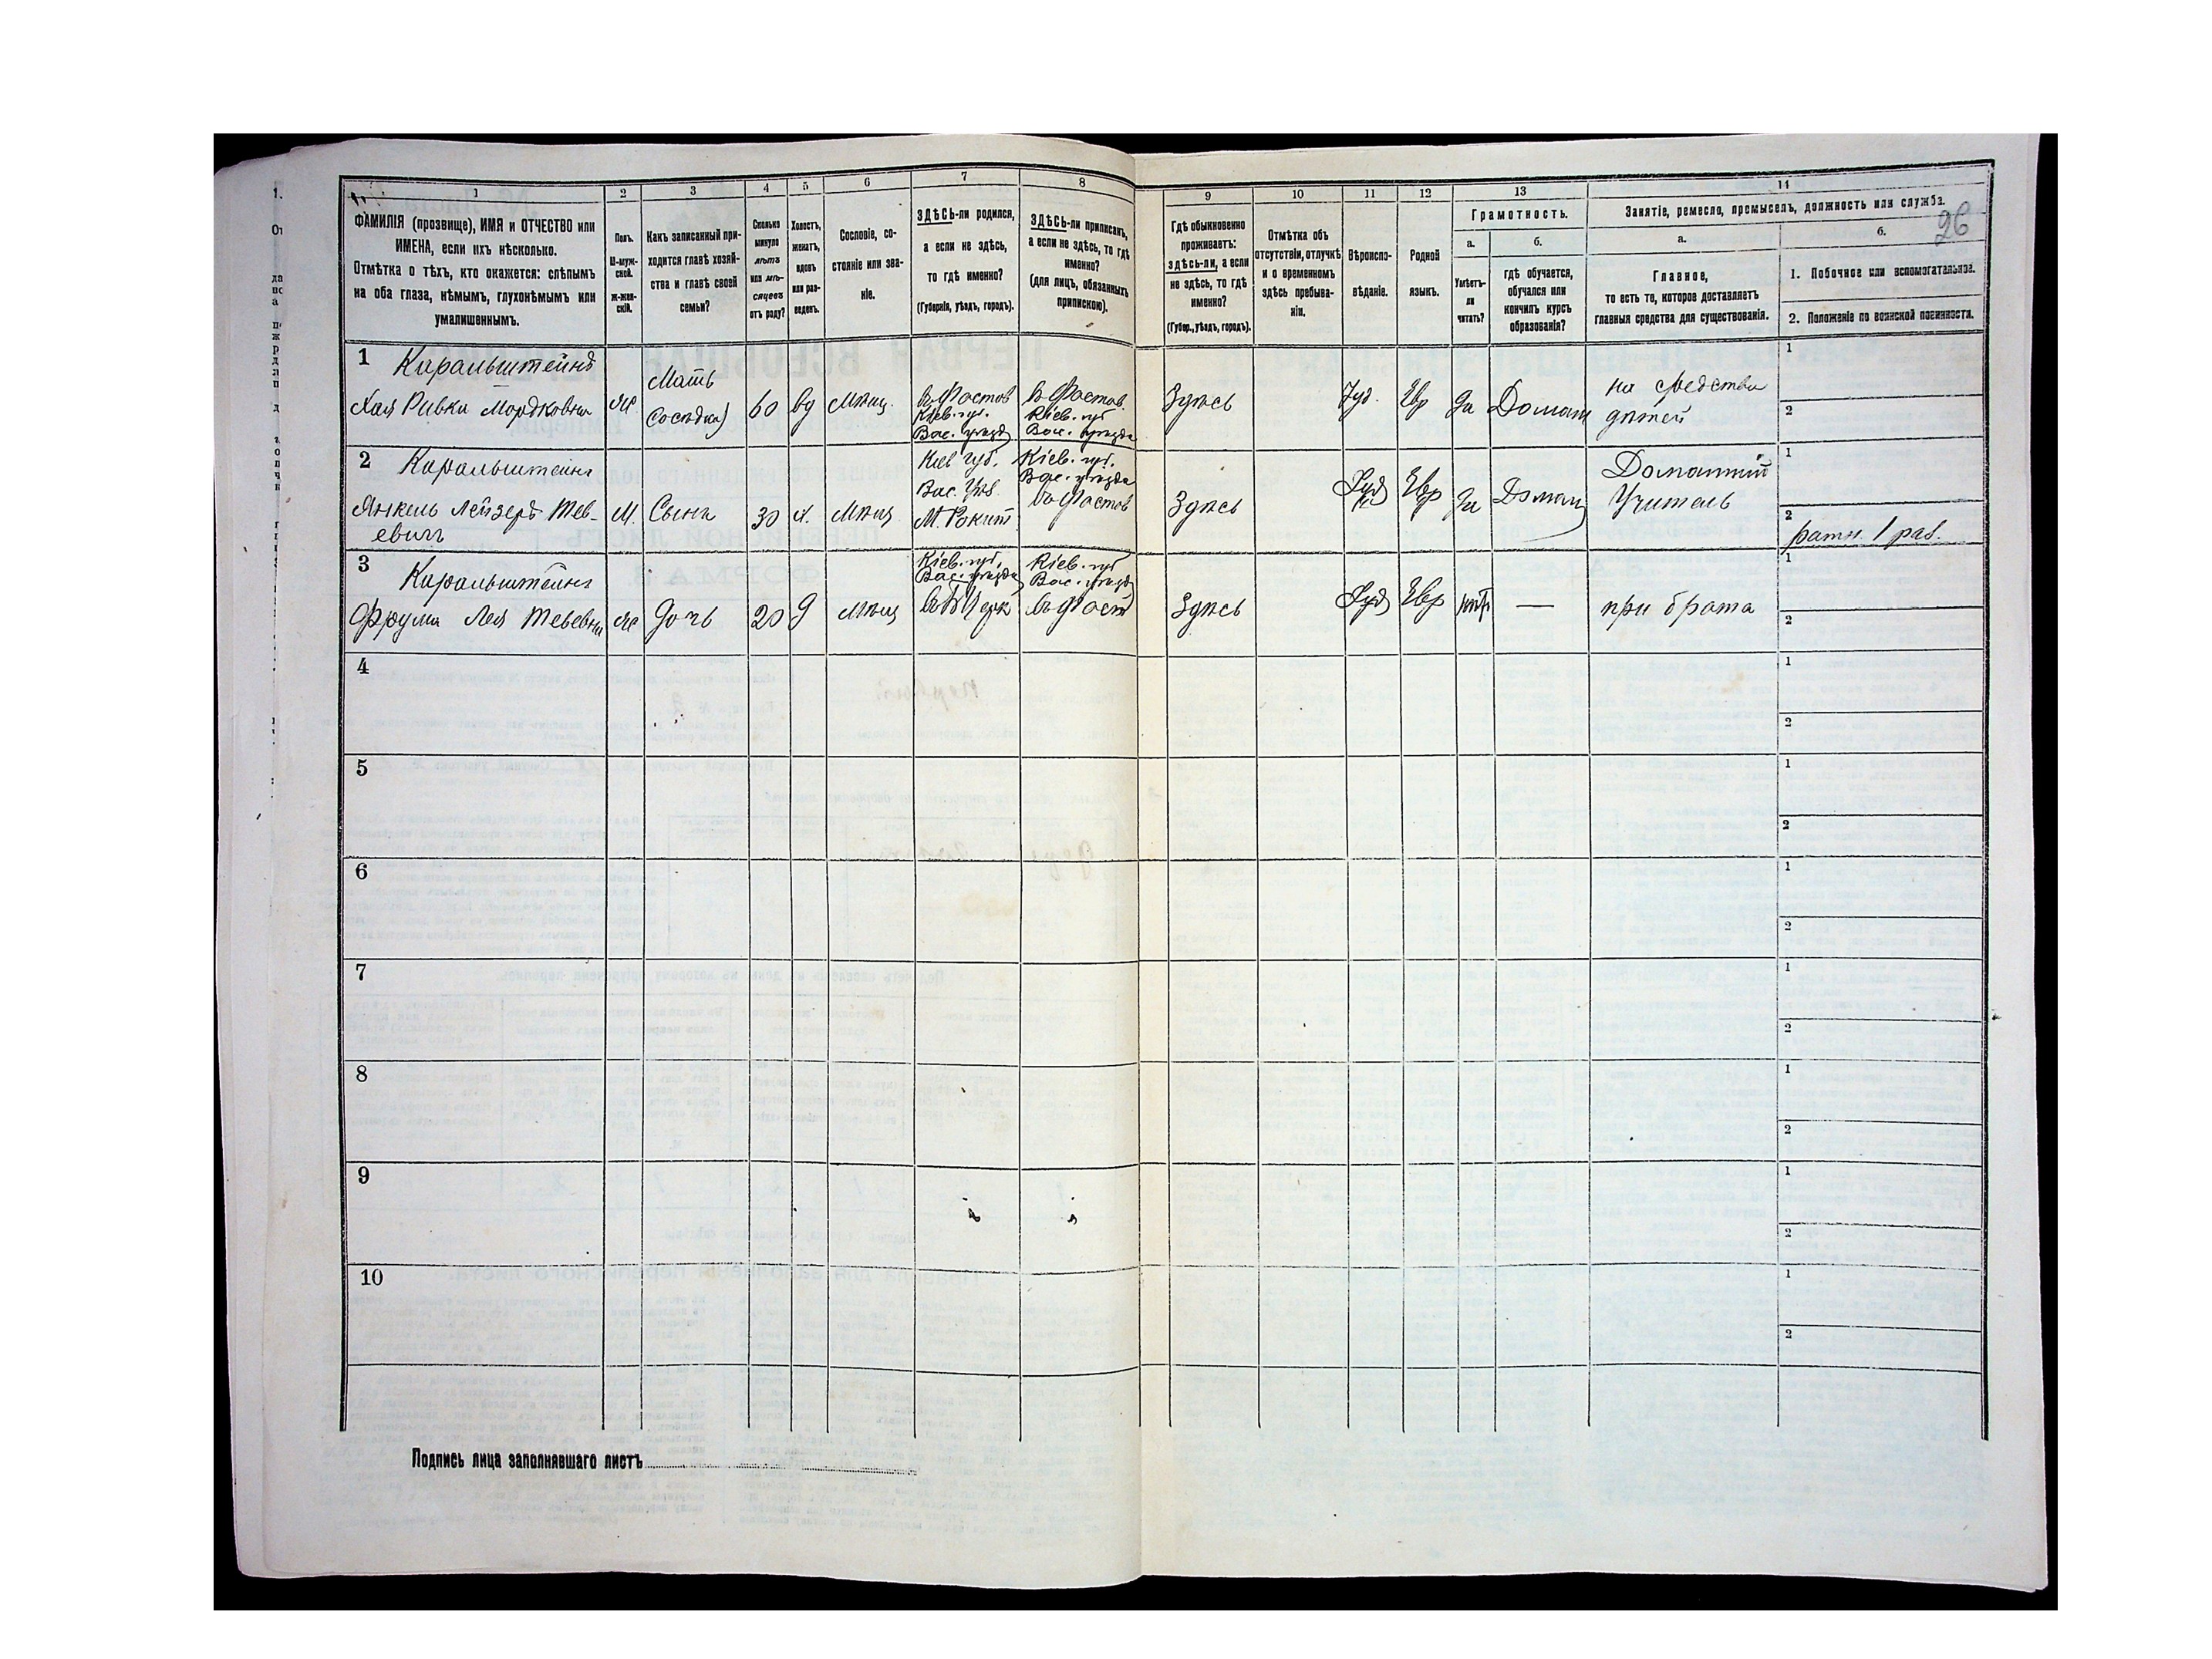 1 2 3 4 5 6 7 8 9 10 11 12 13 14
26
ФАМИЛІЯ (прозвище), ИМЯ и ОТЧЕСТВО или
ИМЕНА, если ихъ нѣсколько.
Отмѣтка о тѣхъ, кто окажется: слѣпымъ
на оба глаза, нѣмымъ, глухонѣмымъ или
умалишеннымъ.
Полъ.
М-муж-
ской.
ж-жен-
скій.
Какъ записанный при-
ходится главѣ хозяй-
ства и главѣ своей
семьи?
Сколько
минуло
лѣтъ
или мѣ-
сяцевъ
отъ роду?
Холостъ,
женатъ,
вдовъ
или раз-
веденъ.
Сословіе, со-
стояніе или зва-
ніе.
ЗДѢСЬ-ли родился,
а если не здѣсь,
то гдѣ именно?
(Губернія, уѣздъ, городъ).
ЗДѢСЬ-ли приписанъ,
а если не здѣсь, то гдѣ
именно?
(для лицъ, обязанныхъ
припискою).
Гдѣ обыкновенно
проживаетъ:
здѣсь-ли, а если
не здѣсь, то гдѣ
именно?
(Губер., уѣздъ, городъ).
Отмѣтка объ
отсутствіи, отлучкѣ
и о временномъ
здѣсь пребыва-
ніи.
Вѣроиспо-
вѣданіе.
Родной
языкъ.
Грамотность.
а.
Умѣетъ-
ли
читать?
б.
гдѣ обучается,
обучался или
кончилъ курсъ
образованія?
Занятіе, ремесло, промыселъ, должность или служба.
а.
Главное,
то есть то, которое доставляетъ
главныя средства для существованія.
б.
1. Побочное или вспомогательное.
2. Положеніе по воинской повинности.
1 Каральштейнъ
Хая Ривка Мордковна
ж
Мать
Сосѣдка)
60
вд
мѣщ.
в Фастов
Кіев. губ.
Вас. уѣзда
в Фастов.
Кіев. губ
Вас. уѣзда
Здѣсь
Іуд.
Евр
да
Домаш
на средства
дѣтей
1
2
2 Каральштейнъ
Янкель Лейзеръ Тев-
евичъ
М.
Сынъ
30
х.
мѣщ
Кіев губ.
Вас. Уѣз.
М. Рокит
Кіев. губ.
Вас. уѣзда
в Фастов
Здѣсь
Іуд
Евр
да
Домаш
Домашній
Учитель
1
2
ратн. 1 раз.
3 Каральштейнъ
Фрума Лея Тевевна
ж
дочь
20
д
мѣщ
Кіев. губ,
Вас. уѣзда
в Б Церк
Кіев. губ
Вас. уѣзд
в Фаст
Здѣсь
Іуд
Евр
нѣтъ
—
при брата
1
2
4
1
2
5
1
2
6
1
2
7
1
2
8
1
2
9
1
2
10
1
2
Подпись лица заполнявшаго листъ